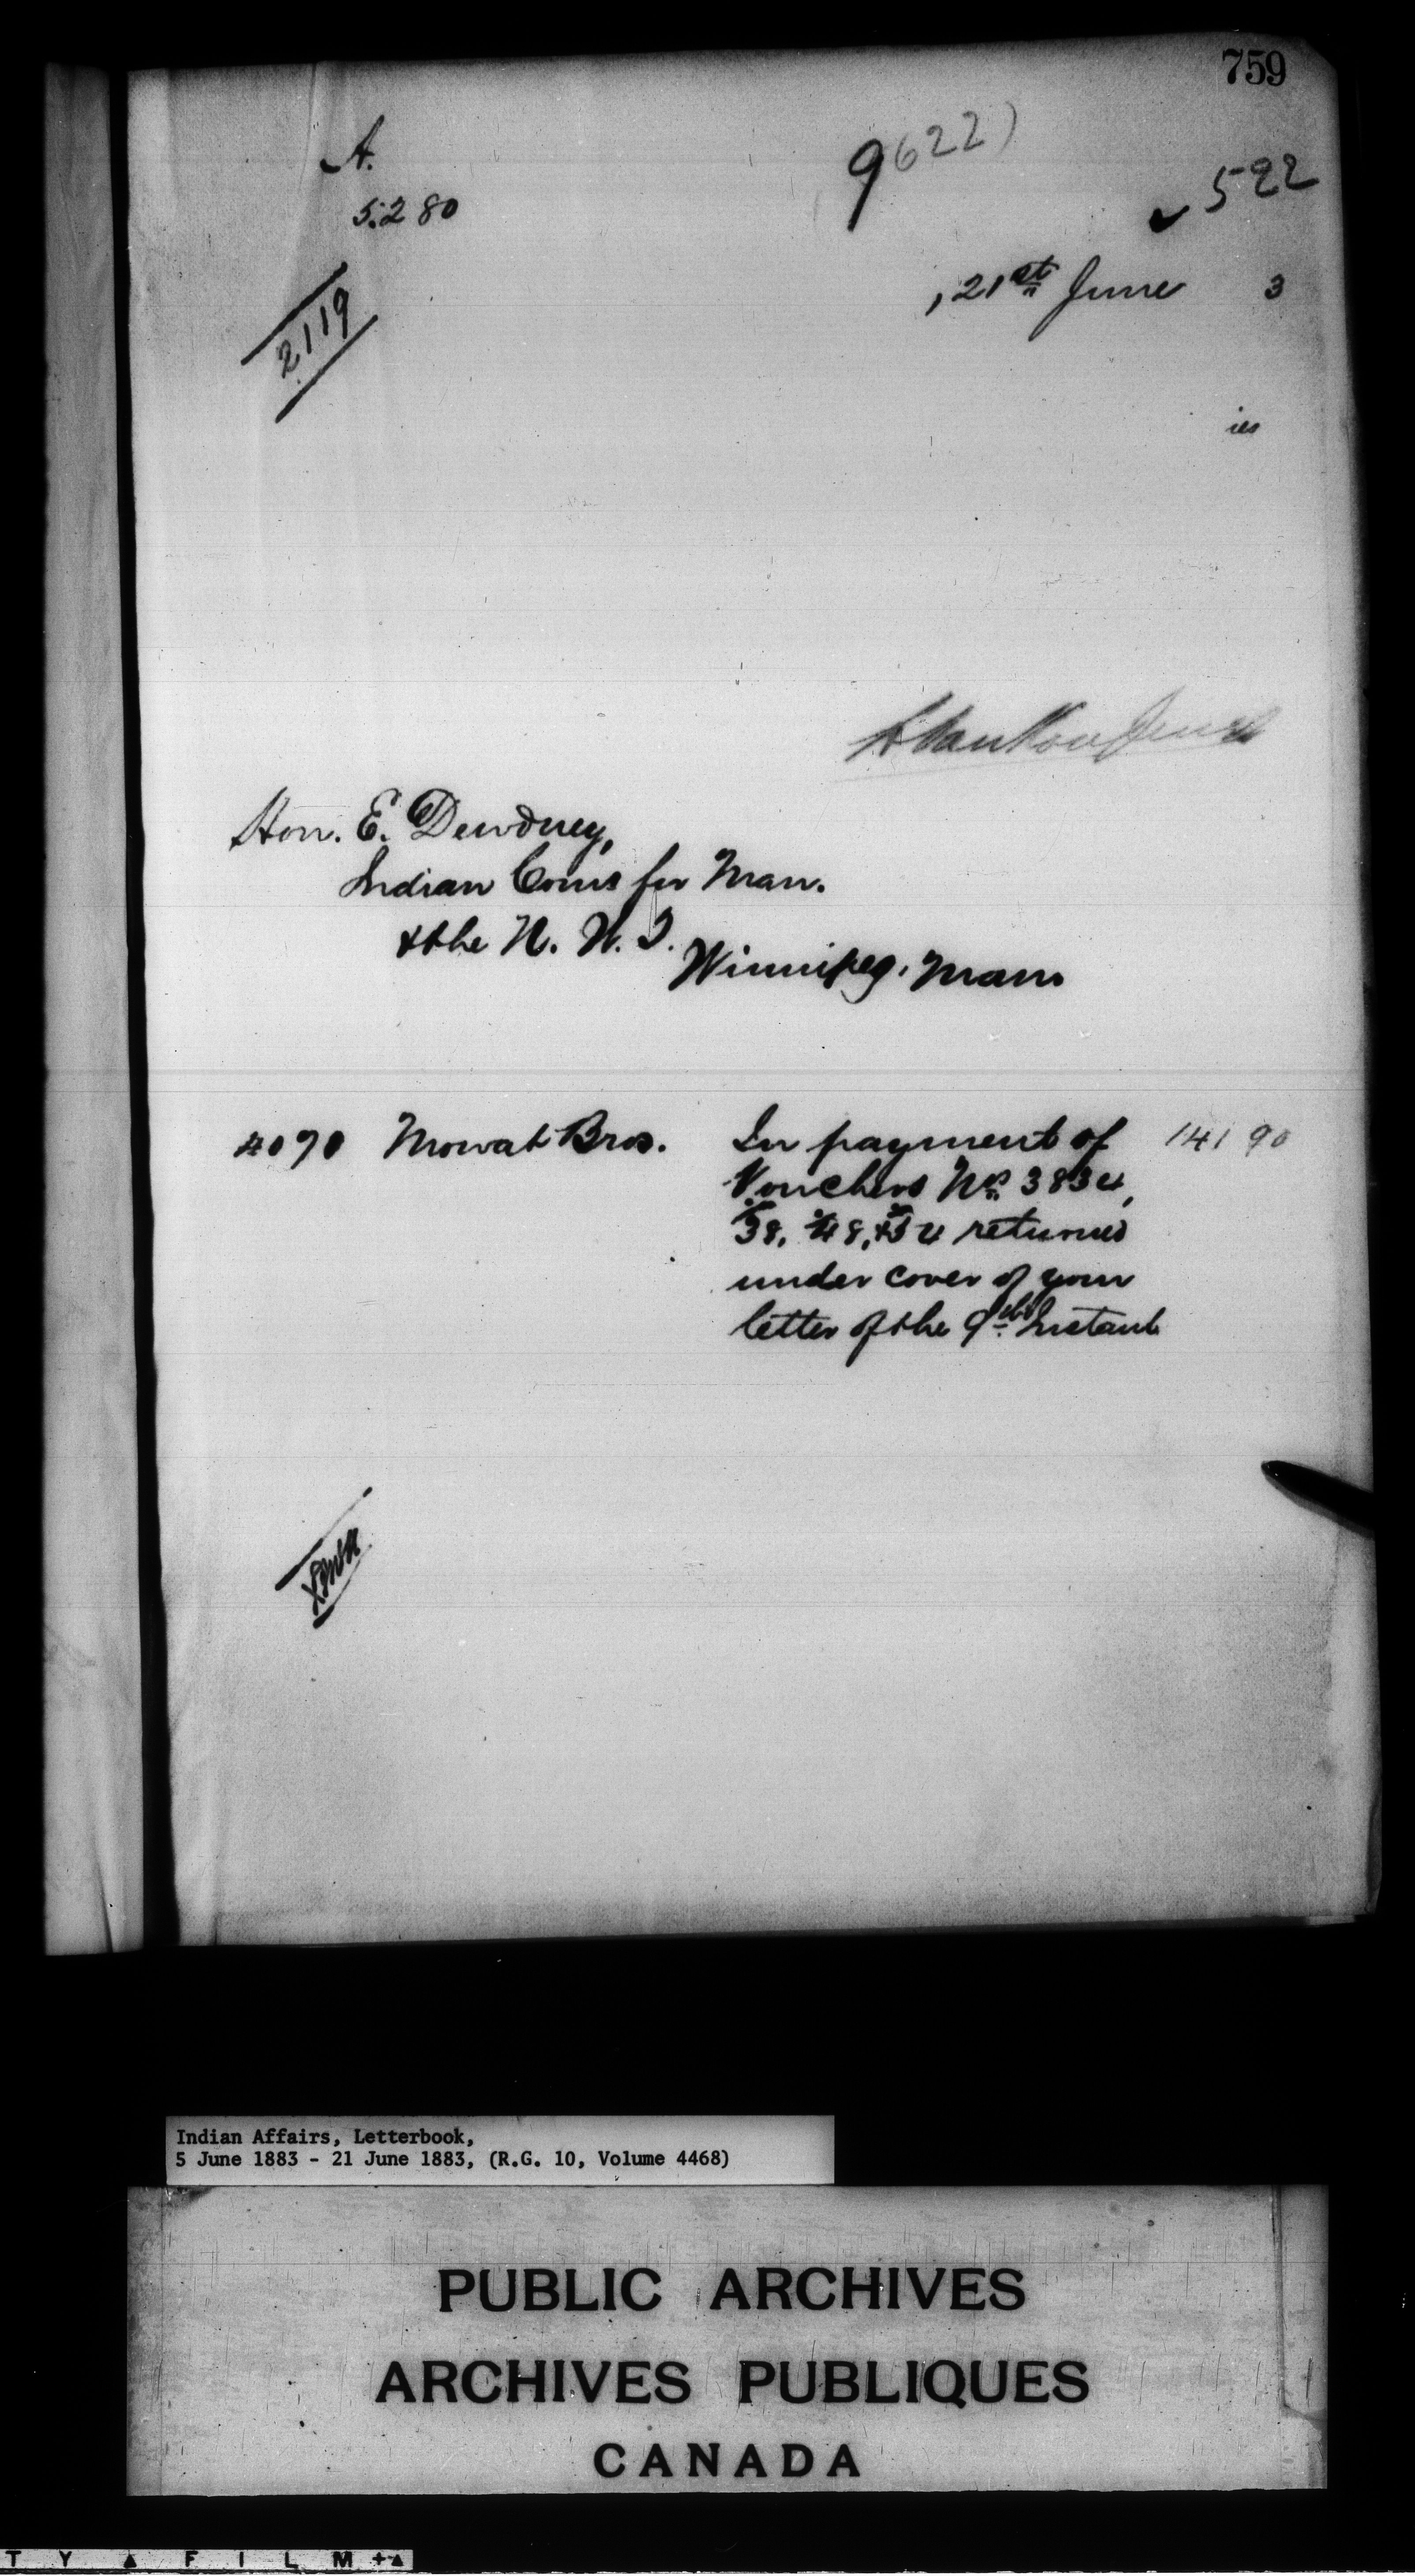 759
A.
5280
9622)
522
2119
, 21st June 3
ies
L. VanKoughnet
Hon. E. Dewdney,
Indian Coms for Man.
& the N. W. T.
Winnipeg, Man.
4090 Mowat Bros. In payment of 141 90
Vouchers Nos 3834,
38, 48, & 54 returned
under cover of your
letter of the 9th Instant
Indian Affairs, Letterbook,
5 June 1883 - 21 June 1883, (R.G. 10, Volume 4468)
PUBLIC ARCHIVES
ARCHIVES PUBLIQUES
CANADA
T Y ▲ F I L M +▲